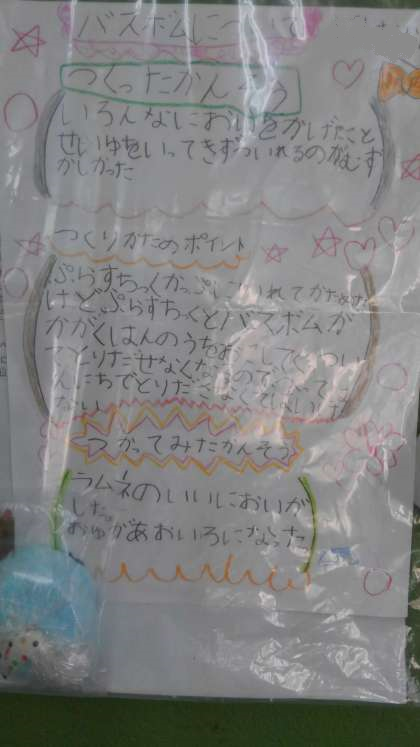 バスボムについて
つくったかんそう
いろんなにおいをかげたこと
せいゆをいってきずついれるのがむず
かしかった
つくりかたのポイント
ぷらすちっくかっぷにいれてかためた
けどぷらすちっくとバスボムが
かがくはんのうをおこしてくっつい
てとりだせなくなるので
んにちでとりだ
ない
つかってみたかんそう
ラムネのいいにおいが
した。
おゆがあおいろになった